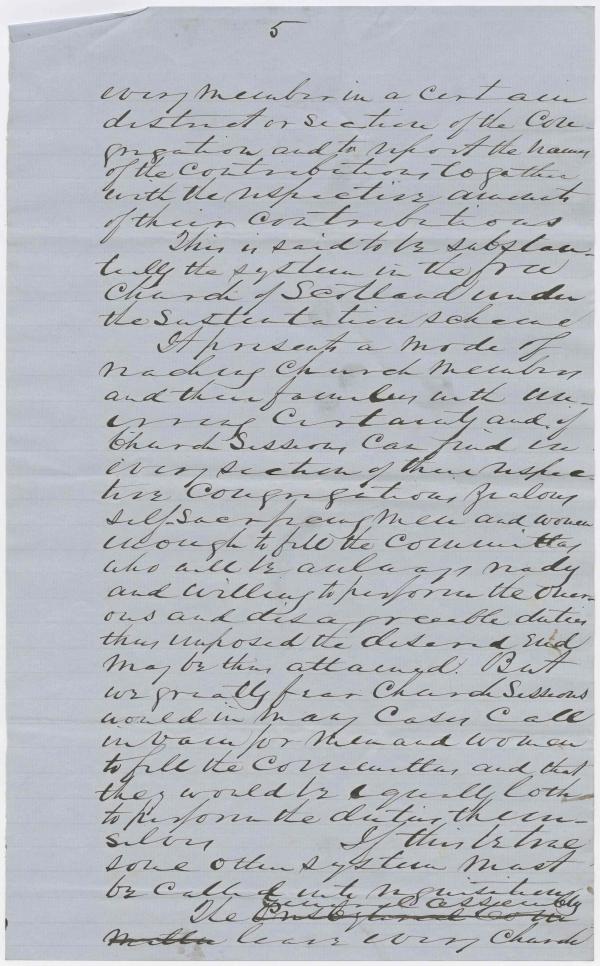 5
every member in a certain
district or section of the Con-
gregation and to report the names
of the contributions together
with the respective amounts
of their contributions
This is said to be substan-
tially the system in the free
Church of Scotland under
the Sustentation scheme
It presents a mode of
reaching Church members
and their families with un-
erring certainty and if
Church Sessions can find in
every section of their respec-
tive Congregations zealous
self-sacrificing men and women
enough to fill the committees
who will be always ready
and willing to perform the oner-
ous and disagreeable duties
thus imposed the desired end
may be thus attained. But
we greatly fear Church Sessions
would in many cases call
in vain for men and women
to fill the committees and that
they would be equally loth
to perform the duties them-
selves If this be true
some other system must
be called into requisition
General Assembly
The Presbyterial Com
mittee leave every Church